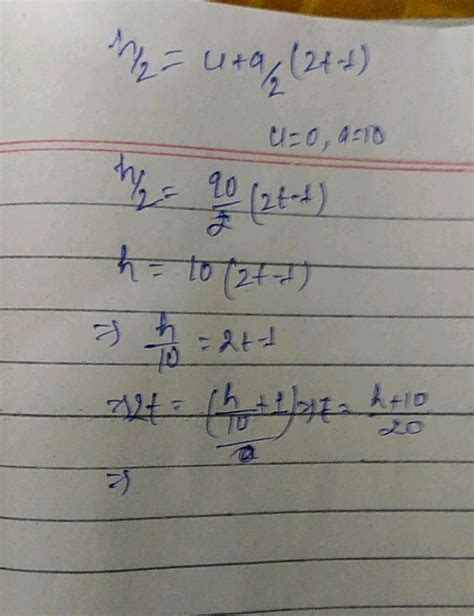 h/2 = u+a/2 (2t-1)
u=0, a=10
h/2 = 10/2 (2t-1)
h = 10 (2t-1)
⇒ h/10 = 2t-1
⇒ 2t = (h/10 + 1) ⇒ t = h+10/20
⇒